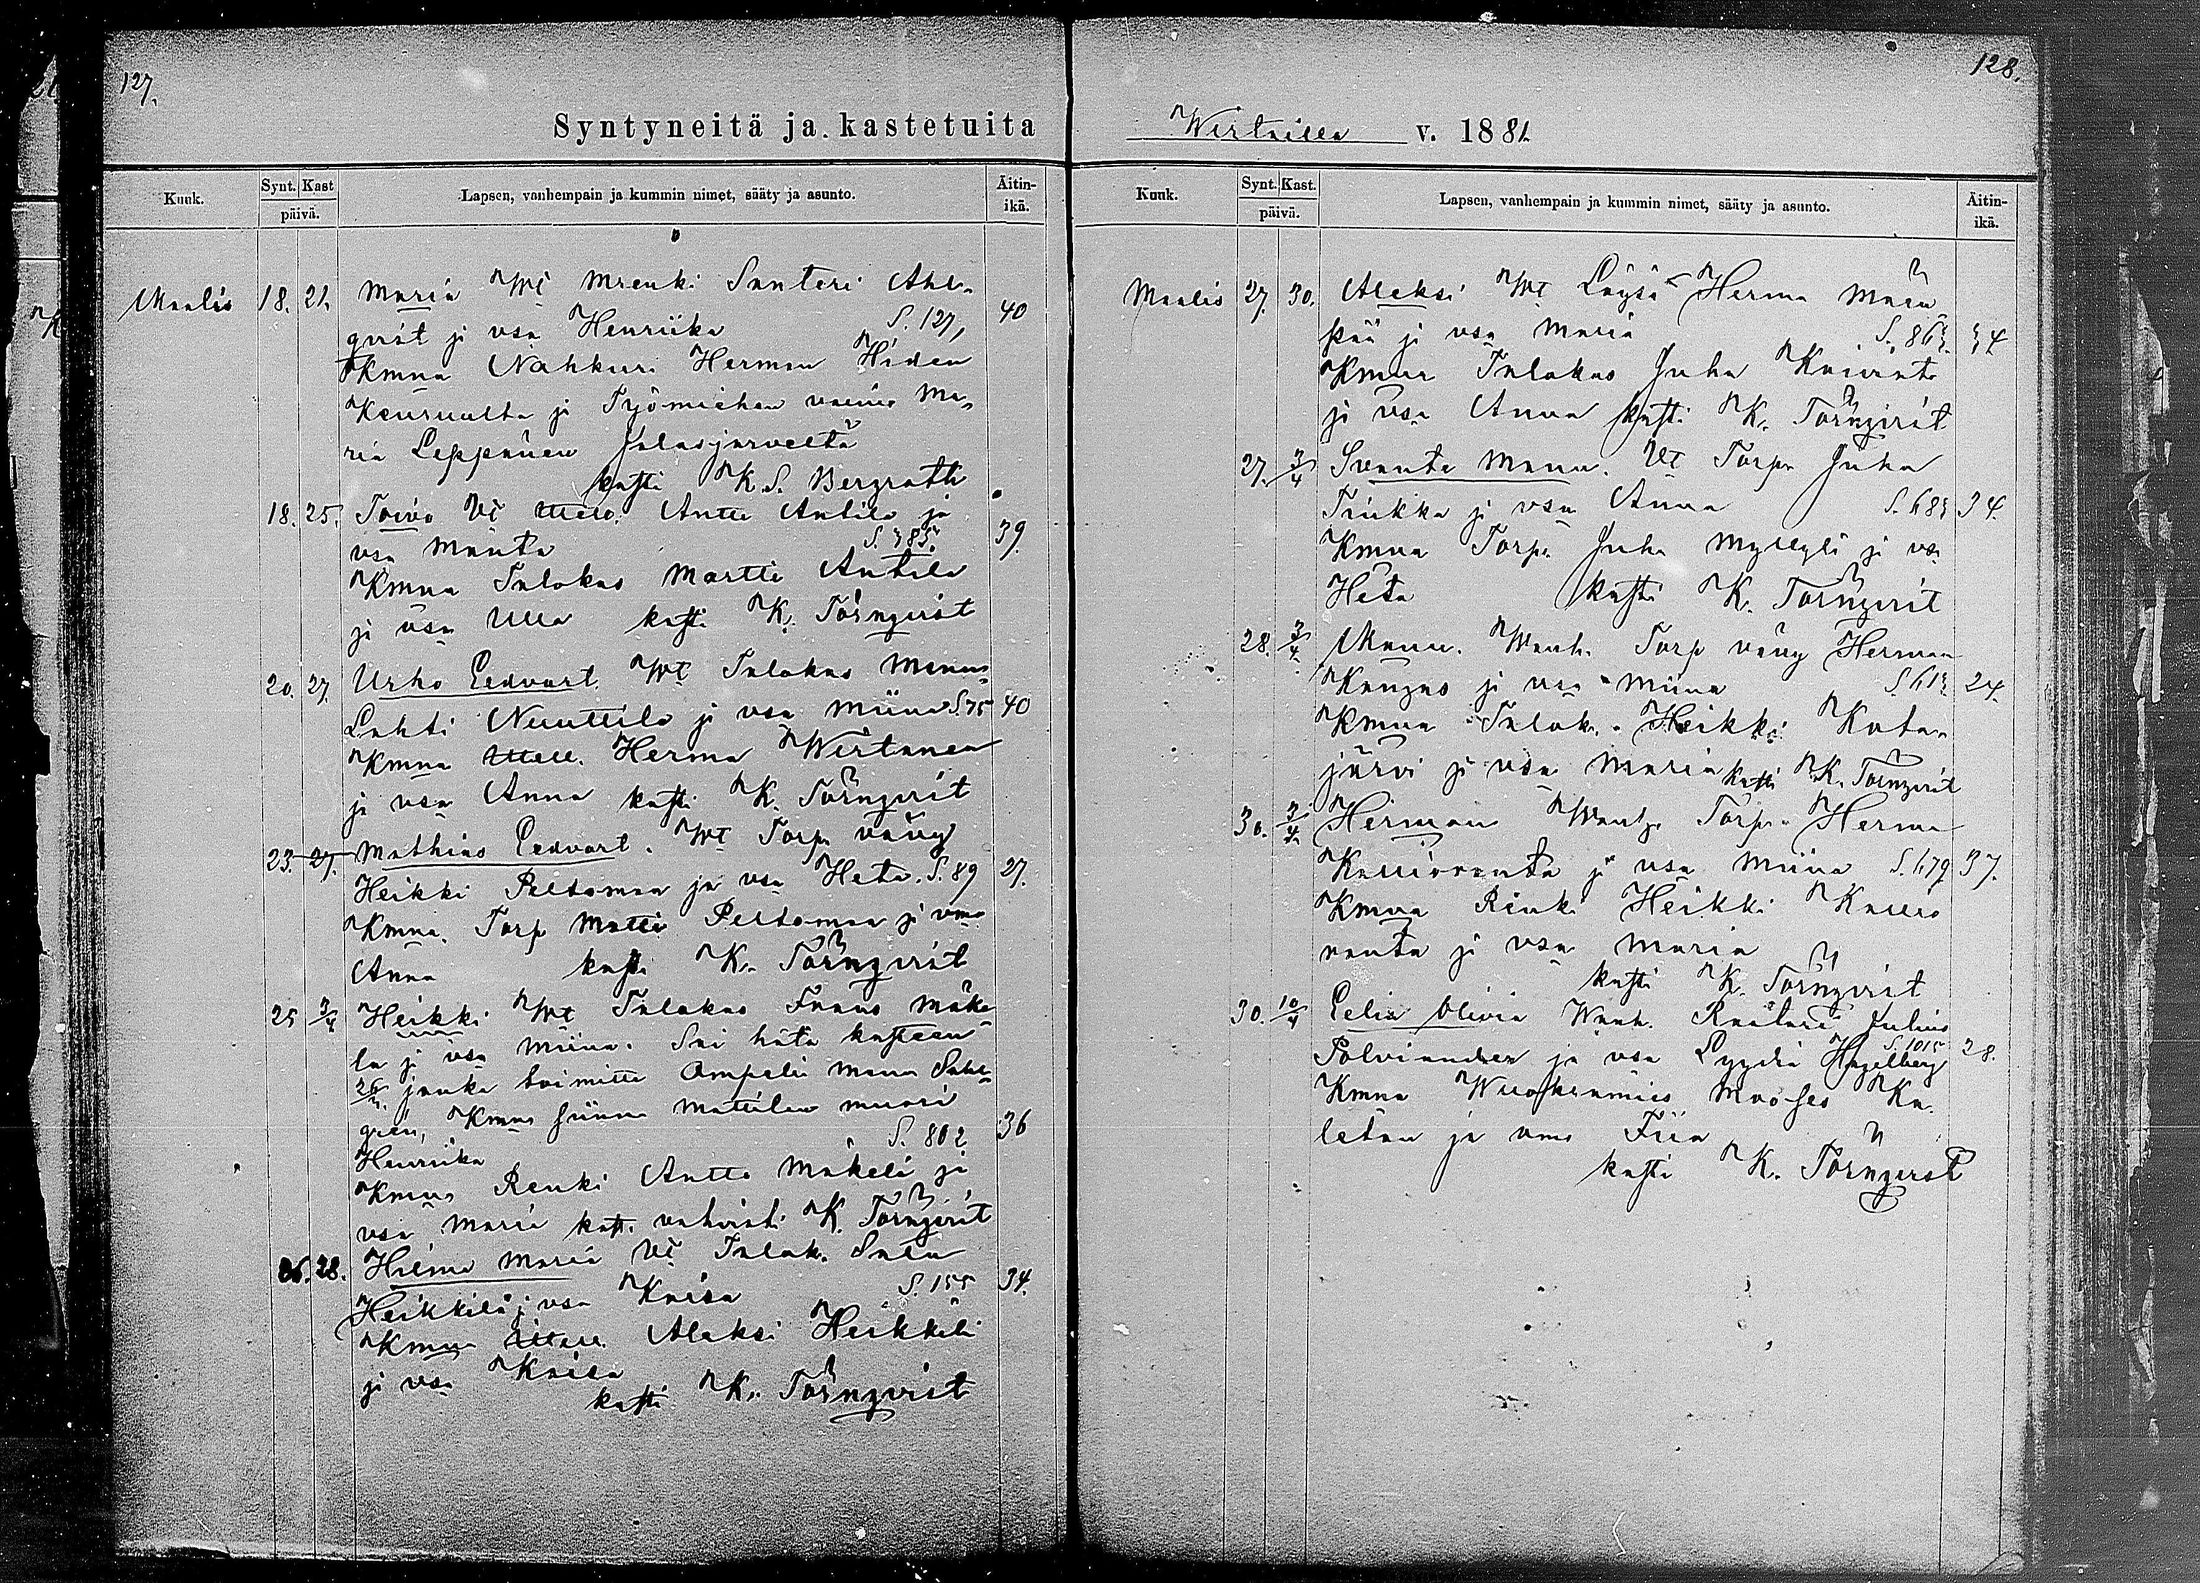 127.
Syntyneitä ja kastetuita
Kuuk.
Synt. Kast
päivä.
Lapsen, vanhempain ja kummin nimet, sääty ja asunto.
Äitin-
ikä.
Maalis 18. 21. Maria Wt Mrenki Santeri Ahl-
qvist ja vsa Henriika S. 127, 40
Kmna Nahkuri Herman Hiden
Keuruulta ja Työmiehen vaimo Ma-
ria Leppänen Jalasjärveltä
kasti K. S. Bergroth
18. 25. Toivo Vt Antti Antila ja
vsa Manta S. 385. 39.
Kmna Talokas Martti Antila
ja vsa Ulla kasti K. Törnqvist
20. 27. Urho Eedvart. Wt Talokas Manu
Lahti Nuuttila ja vsa Miina S. 75 40
Kmna Herma Wirtanen
ja vsa Anna kasti K. Törnqvist
23. 27. Mathias Eedvart. Wt Torp. vävy
Heikki Peltomaa ja vsa Heta. S. 89 27.
Kmna. Torp Matti Peltomaa ja vmo
Anna kasti K. Törnqvist
25 3/4 Heikki Wt Talokas Frans Mäke-
lä ja vsa Miina. Sai hätä kasteen
26/3. jonka toimitti Ompelia Manu Sahl-
grén, Kmna Mattilan muori
Henriika S. 802 36
Kmna Renki Antti Mäkelä ja
vsa Maria kast. vahvisti K. Törnqvist
26. 28. Hilma Maria Vt Talok. Salu
Heikkilä ja vsa Kaisa S. 155 34.
Kmna Aleksi Heikkilä
ja vsa Kaisa
kasti K. Törnqvist
128.
Wirtailla v. 1881.
Kuuk.
Synt. Kast.
päivä.
Lapsen, vanhempain ja kummin nimet, sääty ja asunto.
Äitin-
ikä.
Maalis 27. 30. Aleksi Wt Löysä Herma Mäen
pää ja vsa Maria S. 863. 34
Kmna Talokas Juha
ja vsa Anna kasti K. Törnqvist
27. 3/4 Svante Manu. Vt Torp. Juha
Tiukka ja vsa Anna S. 683 34.
Kmna Torp. Juha Myllylä ja vsa
Heta kasti K. Törnqvist
28. 3/4 Manu. Wanh. Torp vävy Herman
Kangas ja vsa Miina S. 613 24.
Kmna Talok. Heikki Kata-
järvi ja vsa Maria kasti K. Törnqvist
30. 3/4 Herman Wanh. Torp. Herma
Kallioranta ja vsa Miina S. 679 37.
Kmna Renki Heikki Kallio
ranta ja vsa Maria
kasti K. Törnqvist
30. 10/4 Eelin Olivia Wanh. Räätäri Julius
Polviander ja vsa Lyydia Hagelberg S. 1015 28.
Kmna Wuokramies Mooses Ka-
letan ja vmo Fiia
kasti K. Törnqvist